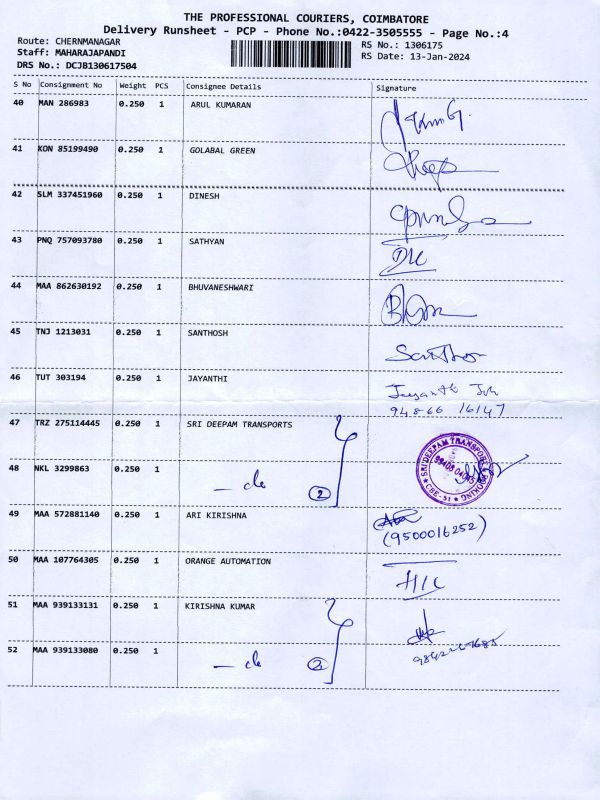 THE PROFESSIONAL COURIERS, COIMBATORE
Delivery Runsheet - PCP - Phone No.:0422-3505555 - Page No.:4
Route: CHERNMANAGAR
Staff: MAHARAJAPANDI
DRS No.: DCJB130617504
RS No.: 1306175
RS Date: 13-Jan-2024
S No Consignment No Weight PCS Consignee Details Signature
40 MAN 286983 0.250 1 ARUL KUMARAN
41 KON 85199490 0.250 1 GOLABAL GREEN
42 SLM 337451960 0.250 1 DINESH
43 PNQ 757093780 0.250 1 SATHYAN
44 MAA 862630192 0.250 1 BHUVANESHWARI
45 TNJ 1213031 0.250 1 SANTHOSH Santhos
46 TUT 303194 0.250 1 JAYANTHI
94866 16147
47 TRZ 275114445 0.250 1 SRI DEEPAM TRANSPORTS
SRI DEEPAM TRANSPORT
CBE-51
48 NKL 3299863 0.250 1 — do 2
49 MAA 572881140 0.250 1 ARI KIRISHNA
(9500016252)
50 MAA 107764305 0.250 1 ORANGE AUTOMATION
H/C
51 MAA 939133131 0.250 1 KIRISHNA KUMAR
52 MAA 939133080 0.250 1 — do 2